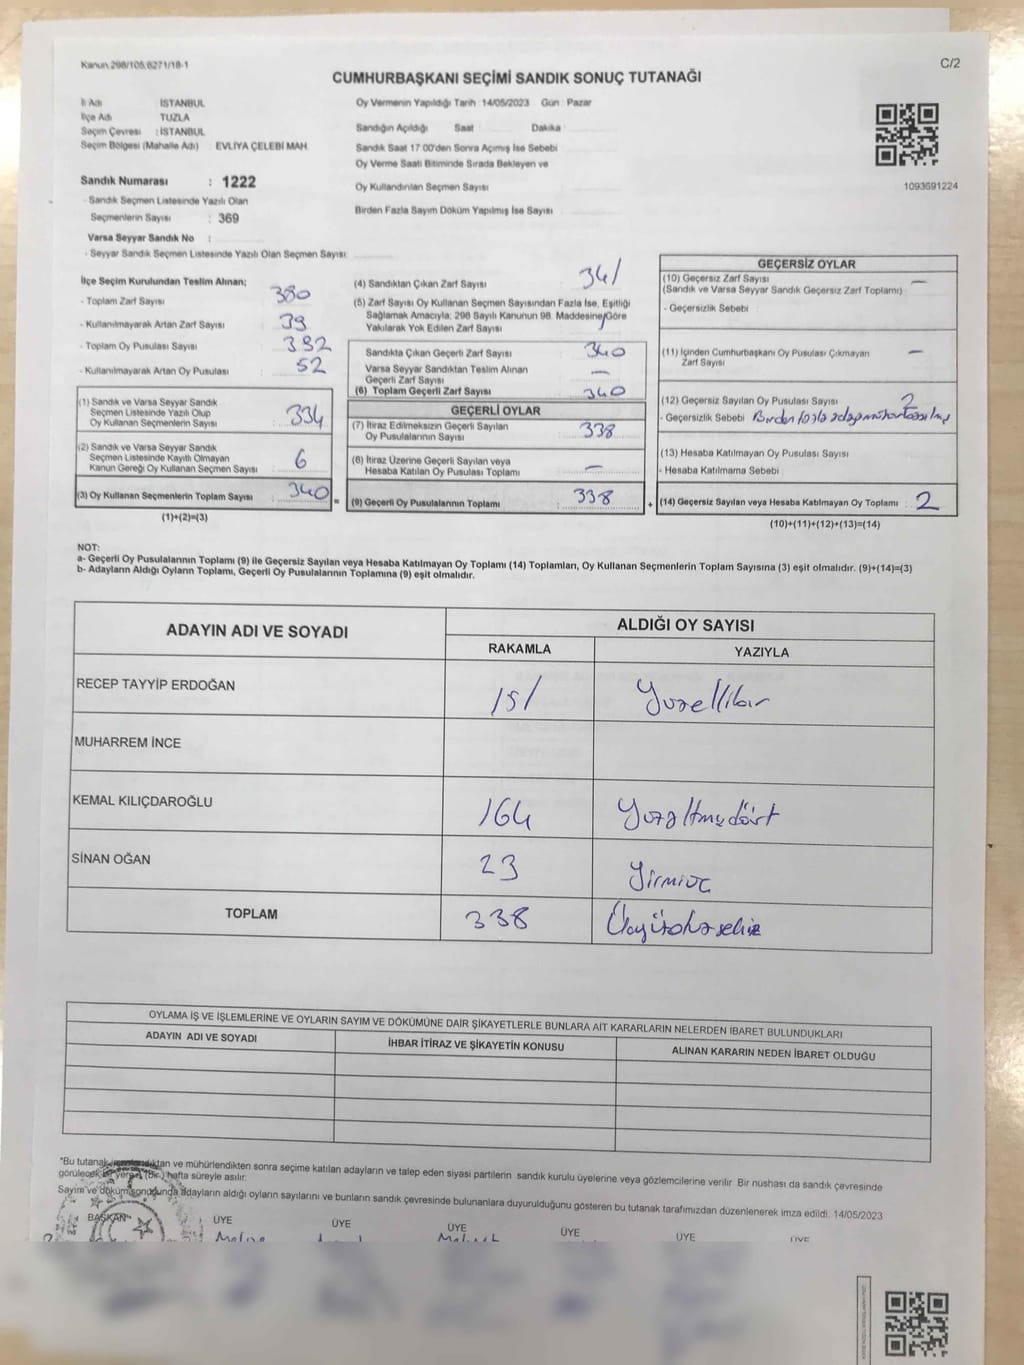 Kanun.298/105,6271/18-1
C/2
CUMHURBAŞKANI SEÇİMİ SANDIK SONUÇ TUTANAĞI
İl Adı İSTANBUL
İlçe Adı TUZLA
Seçim Çevresi : İSTANBUL
Seçim Bölgesi (Mahalle Adı) EVLİYA ÇELEBİ MAH
Sandık Numarası : 1222
- Sandık Seçmen Listesinde Yazılı Olan
Seçmenlerin Sayısı : 369
Varsa Seyyar Sandık No :
- Seyyar Sandık Seçmen Listesinde Yazılı Olan Seçmen Sayısı:
Oy Vermenin Yapıldığı Tarih 14/05/2023 Gün : Pazar
Sandığın Açıldığı Saat Dakika
Sandık Saat 17:00'den Sonra Açımış İse Sebebi
Oy Verme Saati Bitiminde Sırada Bekleyen ve
Oy Kullandırılan Seçmen Sayısı
Birden Fazla Sayım Döküm Yapılmış İse Sayısı
1093691224
İlçe Seçim Kurulundan Teslim Alınan;
- Toplam Zarf Sayısı 380
- Kullanılmayarak Artan Zarf Sayısı 39
- Toplam Oy Pusulası Sayısı 392
- Kullanılmayarak Artan Oy Pusulası 52
(1) Sandık ve Varsa Seyyar Sandık
Seçmen Listesinde Yazılı Olup
Oy Kullanan Seçmenlerin Sayısı 334
(2) Sandık ve Varsa Seyyar Sandık
Seçmen Listesinde Kayıtlı Olmayan
Kanun Gereği Oy Kullanan Seçmen Sayısı 6
(3) Oy Kullanan Seçmenlerin Toplam Sayısı 340 =
(1)+(2)=(3)
(4) Sandıktan Çıkan Zarf Sayısı 341
(5) Zarf Sayısı Oy Kullanan Seçmen Sayısından Fazla İse, Eşitliği
Sağlamak Amacıyla; 298 Sayılı Kanunun 98. Maddesine Göre
Yakılarak Yok Edilen Zarf Sayısı
Sandıkta Çıkan Geçerli Zarf Sayısı 340
Varsa Seyyar Sandıktan Teslim Alınan
Geçerli Zarf Sayısı —
(6) Toplam Geçerli Zarf Sayısı 340
GEÇERLİ OYLAR
(7) İtiraz Edilmeksizin Geçerli Sayılan
Oy Pusulalarının Sayısı 338
(8) İtiraz Üzerine Geçerli Sayılan veya
Hesaba Katılan Oy Pusulası Toplamı —
(9) Geçerli Oy Pusulalarının Toplamı 338 +
GEÇERSİZ OYLAR
(10) Geçersiz Zarf Sayısı
(Sandık ve Varsa Seyyar Sandık Geçersiz Zarf Toplamı) —
- Geçersizlik Sebebi
(11) İçinden Cumhurbaşkanı Oy Pusulası Çıkmayan
Zarf Sayısı —
(12) Geçersiz Sayılan Oy Pusulası Sayısı 2
- Geçersizlik Sebebi Birden fazla
(13) Hesaba Katılmayan Oy Pusulası Sayısı
- Hesaba Katılmama Sebebi
(14) Geçersiz Sayılan veya Hesaba Katılmayan Oy Toplamı : 2
(10)+(11)+(12)+(13)=(14)
NOT:
a- Geçerli Oy Pusulalarının Toplamı (9) ile Geçersiz Sayılan veya Hesaba Katılmayan Oy Toplamı (14) Toplamları, Oy Kullanan Seçmenlerin Toplam Sayısına (3) eşit olmalıdır. (9)+(14)=(3)
b- Adayların Aldığı Oyların Toplamı, Geçerli Oy Pusulalarının Toplamına (9) eşit olmalıdır.
ADAYIN ADI VE SOYADI ALDIĞI OY SAYISI
RAKAMLA YAZIYLA
RECEP TAYYİP ERDOĞAN 151 Yüzellibir
MUHARREM İNCE
KEMAL KILIÇDAROĞLU 164 Yüzaltmışdört
SİNAN OĞAN 23 Yirmiüç
TOPLAM 338 Üçyüzotuzsekiz
OYLAMA İŞ VE İŞLEMLERİNE VE OYLARIN SAYIM VE DÖKÜMÜNE DAİR ŞİKAYETLERLE BUNLARA AİT KARARLARIN NELERDEN İBARET BULUNDUKLARI
ADAYIN ADI VE SOYADI İHBAR İTİRAZ VE ŞİKAYETİN KONUSU ALINAN KARARIN NEDEN İBARET OLDUĞU
*Bu tutanak ve mühürlendikten sonra seçime katılan adayların ve talep eden siyasi partilerin sandık kurulu üyelerine veya gözlemcilerine verilir Bir nüshası da sandık çevresinde
görülecek bir yere (Bir) hafta süreyle asılır.
Sayım ve döküm sonucunda adayların aldığı oyların sayılarını ve bunların sandık çevresinde bulunanlara duyurulduğunu gösteren bu tutanak tarafımızdan düzenlenerek imza edildi. 14/05/2023
BAŞKAN ÜYE ÜYE ÜYE ÜYE ÜYE ÜYE